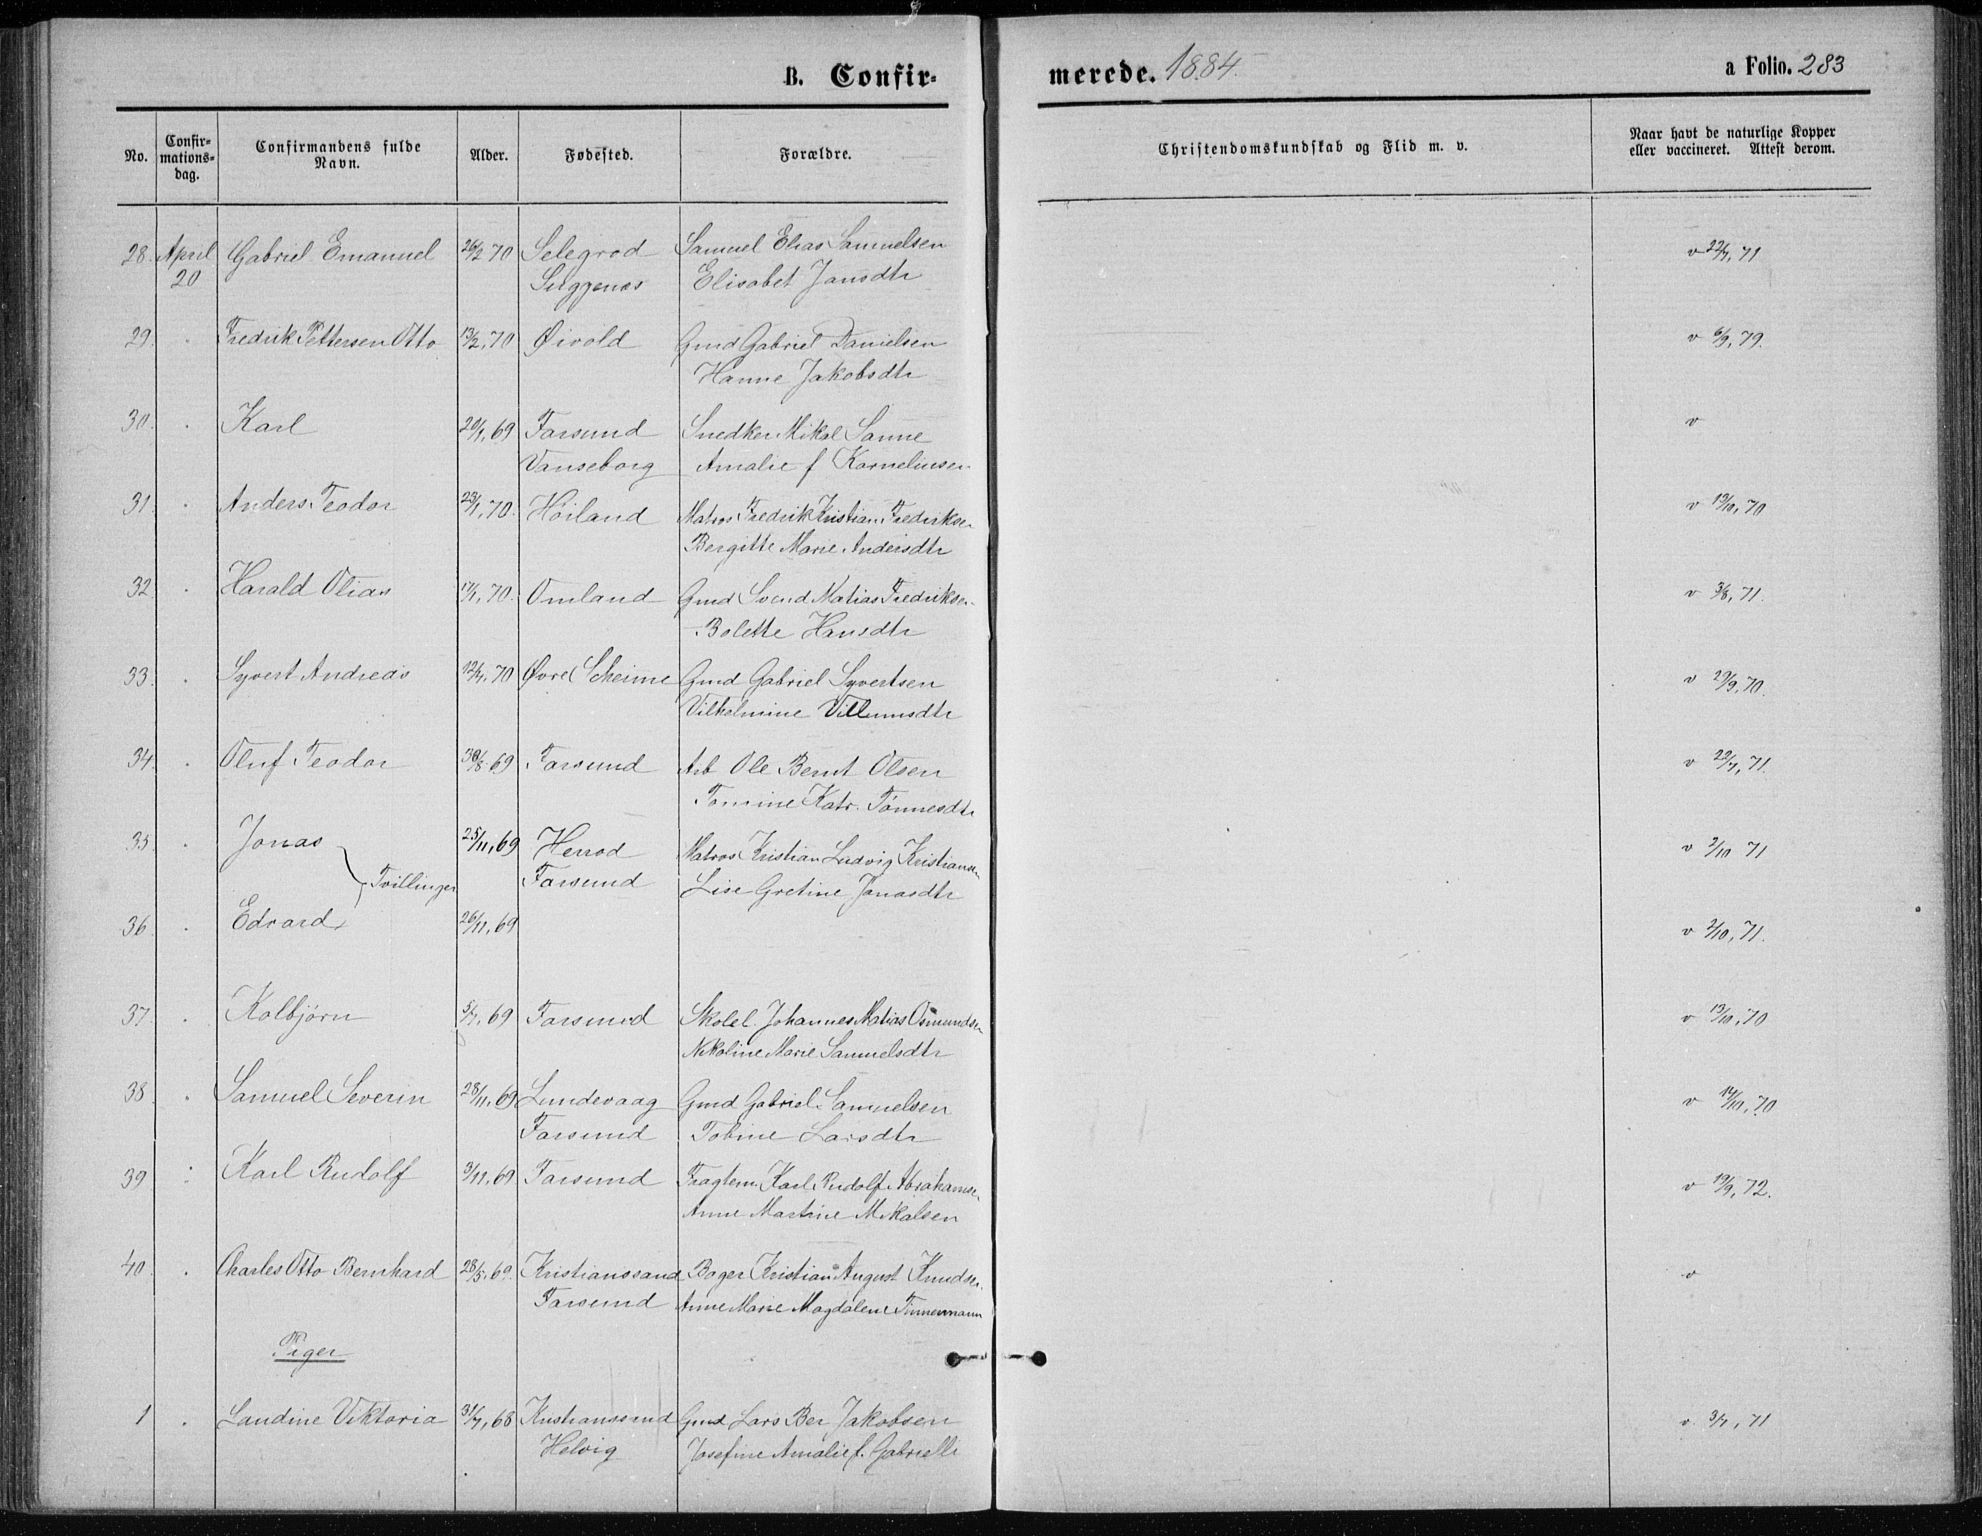 B. Confir-
merede. 1884.
a Folio. 283
No.
Confir-
mations-
dag.
Confirmandens fulde
Navn.
Alder.
Fødested.
Forældre.
Christendomskundskab og Flid m. v.
Naar havt de naturlige Kopper
eller vaccineret. Attest derom.
28. April Gabriel Emanuel 26/2 70 Selegrod Samuel Elias Samuelsen v 22/7, 71
20 Elisabet Jansdtr
29. Fredrik Pettersen Otto 13/2, 70 Øivold Gmd Gabriel Danielsen v 6/9, 79.
Hanne Jakobsdtr
30. Karl 20/1, 69 Farsund Snedker Mikal Sanne v
Vanseborg Amalie f Kornelius​en
31. Anders Teodor 23/1, 70. Höiland Matros Fredrik Kristian Fredriksen v 13/10, 70
Bergitte Marie Andersdtr
32. Harald Olias 17/1, 70. Omland Gmd Svend Matias Fredriksen v 3/8, 71.
Bolette Hansdtr
33. Syvert Andreas 12/4, 70 Øvre Skeime Gmd Gabriel Syvertsen v 29/9, 70.
Vilhelmine Villumsdtr
34. Oluf Teodor 30/8 69 Farsund Arb Ole Bernt Olsen v 22/7, 71.
Tomine Katr. Tönnesdtr
35. Jonas 25/11, 69 Herrod Matros Kristian Ludvig Kristiansen v 2/10 71
Tvillinger Farsund Lise Gretine Jonasdtr
36. Edvard 26/11, 69 v 2/10, 71.
37. Kolbjörn 5/7, 69 Farsund Skolel. Johannes Matias Osmundsen v 13/10, 70
Nikoline Marie Samuelsdtr
38. Samuel Severin 28/11, 69 Lundevaag Gmd Gabriel Samuelsen v 14/10, 70
Farsund Tobine Larsdtr
39 Karl Rudolf 3/11, 69 Farsund Fragtem. Karl Rudolf Abrahamsen v 19/9, 72.
Anne Martine Mikalsen
40. Charles Otto Bernhard 28/5. 69. Kristianssand Bager Kristian August Knudsen v
Farsund Anne Marie Magdalene Timmermann
Piger
1 Landine Viktoria 31/7, 68 Kristianssund Gmd Lars Ber Jakobsen v. 3/7, 71
Helvig Josefine Amalie f. Gabrielli